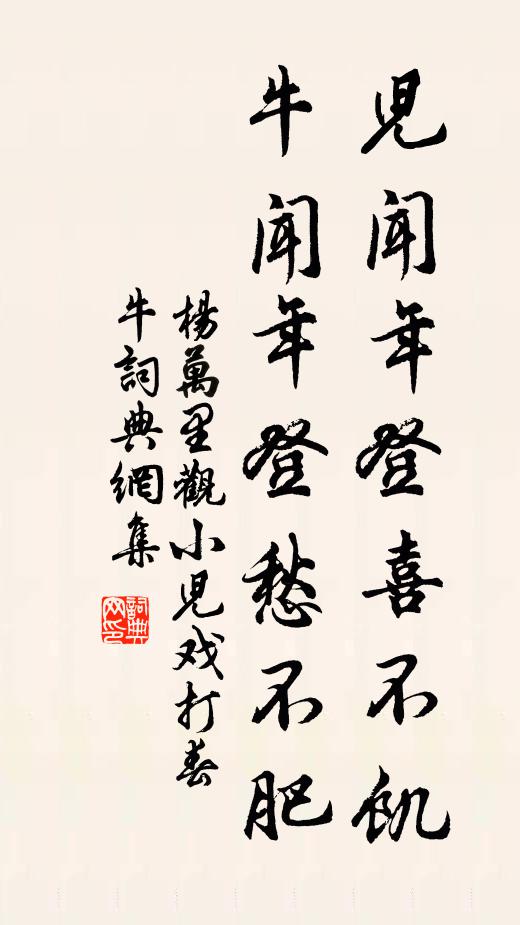 兒聞年登喜不飢
牛聞年登愁不肥
楊萬里觀小兒戏打春
牛詞典網集
詞典
网印